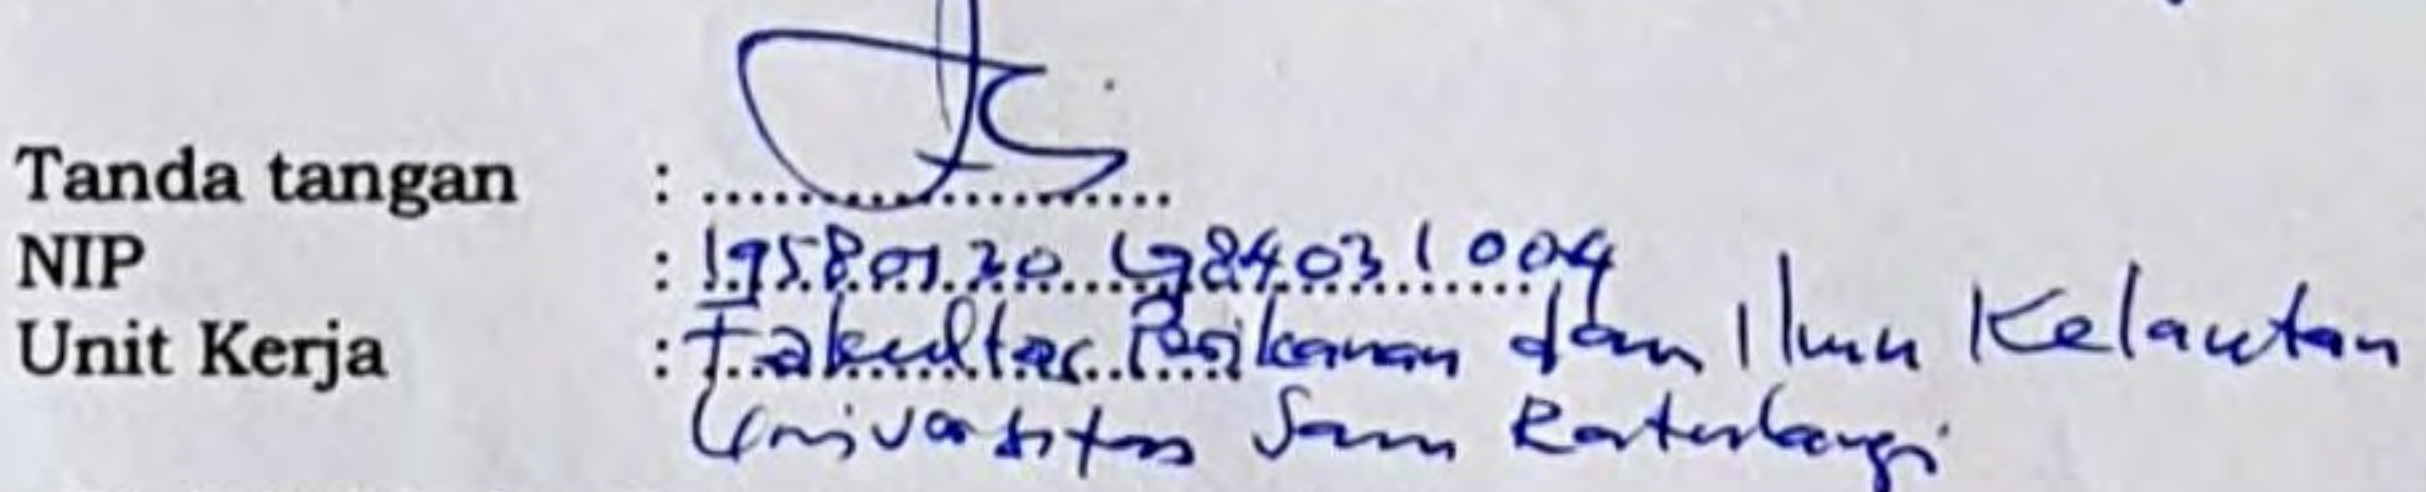 Tanda tangan : ....................
NIP : 19580120 198403 1 004
Unit Kerja : Fakultas Perikanan dan Ilmu Kelautan
Universitas Sam Ratulangi